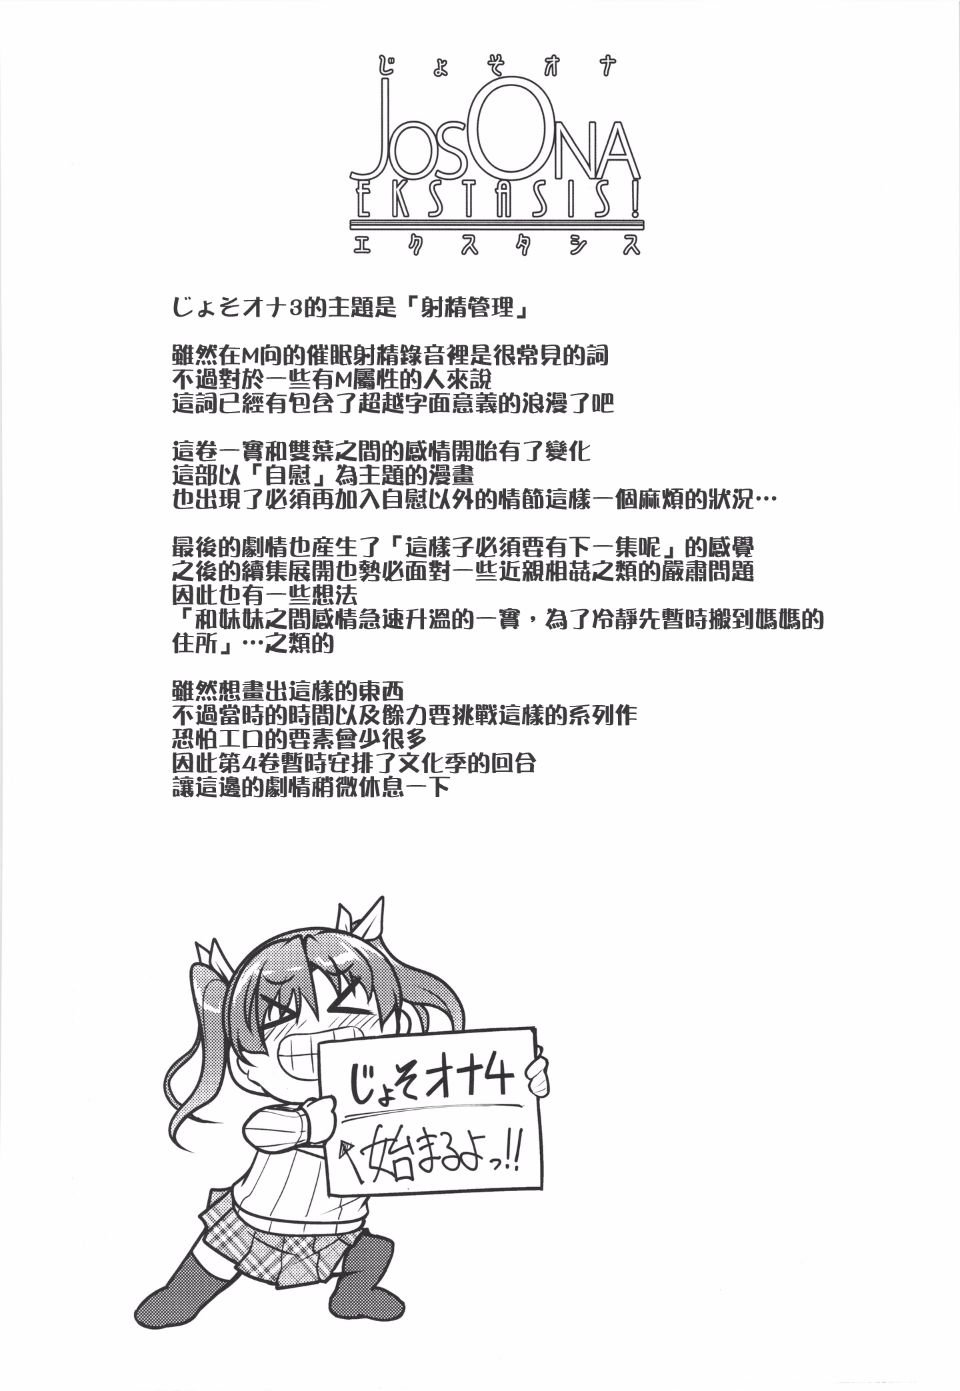 じょそオナ
JOSONA
EKSTASIS!
エクスタシス
じょそオナ3的主題是「射精管理」
雖然在M向的催眠射精錄音裡是很常見的詞
不過對於一些有M屬性的人來說
這詞已經有包含了超越字面意義的浪漫了吧
這卷一實和雙葉之間的感情開始有了變化
這部以「自慰」為主題的漫畫
也出現了必須再加入自慰以外的情節這樣一個麻煩的狀況…
最後的劇情也產生了「這樣子必須要有下一集呢」的感覺
之後的續集展開也勢必面對一些近親相姦之類的嚴肅問題
因此也有一些想法
「和妹妹之間感情急速升溫的一實，為了冷靜先暫時搬到媽媽的
住所」…之類的
雖然想畫出這樣的東西
不過當時的時間以及餘力要挑戰這樣的系列作
恐怕工口的要素會少很多
因此第4卷暫時安排了文化季的回合
讓這邊的劇情稍微休息一下
じょそオナ4
始まるよっ!!